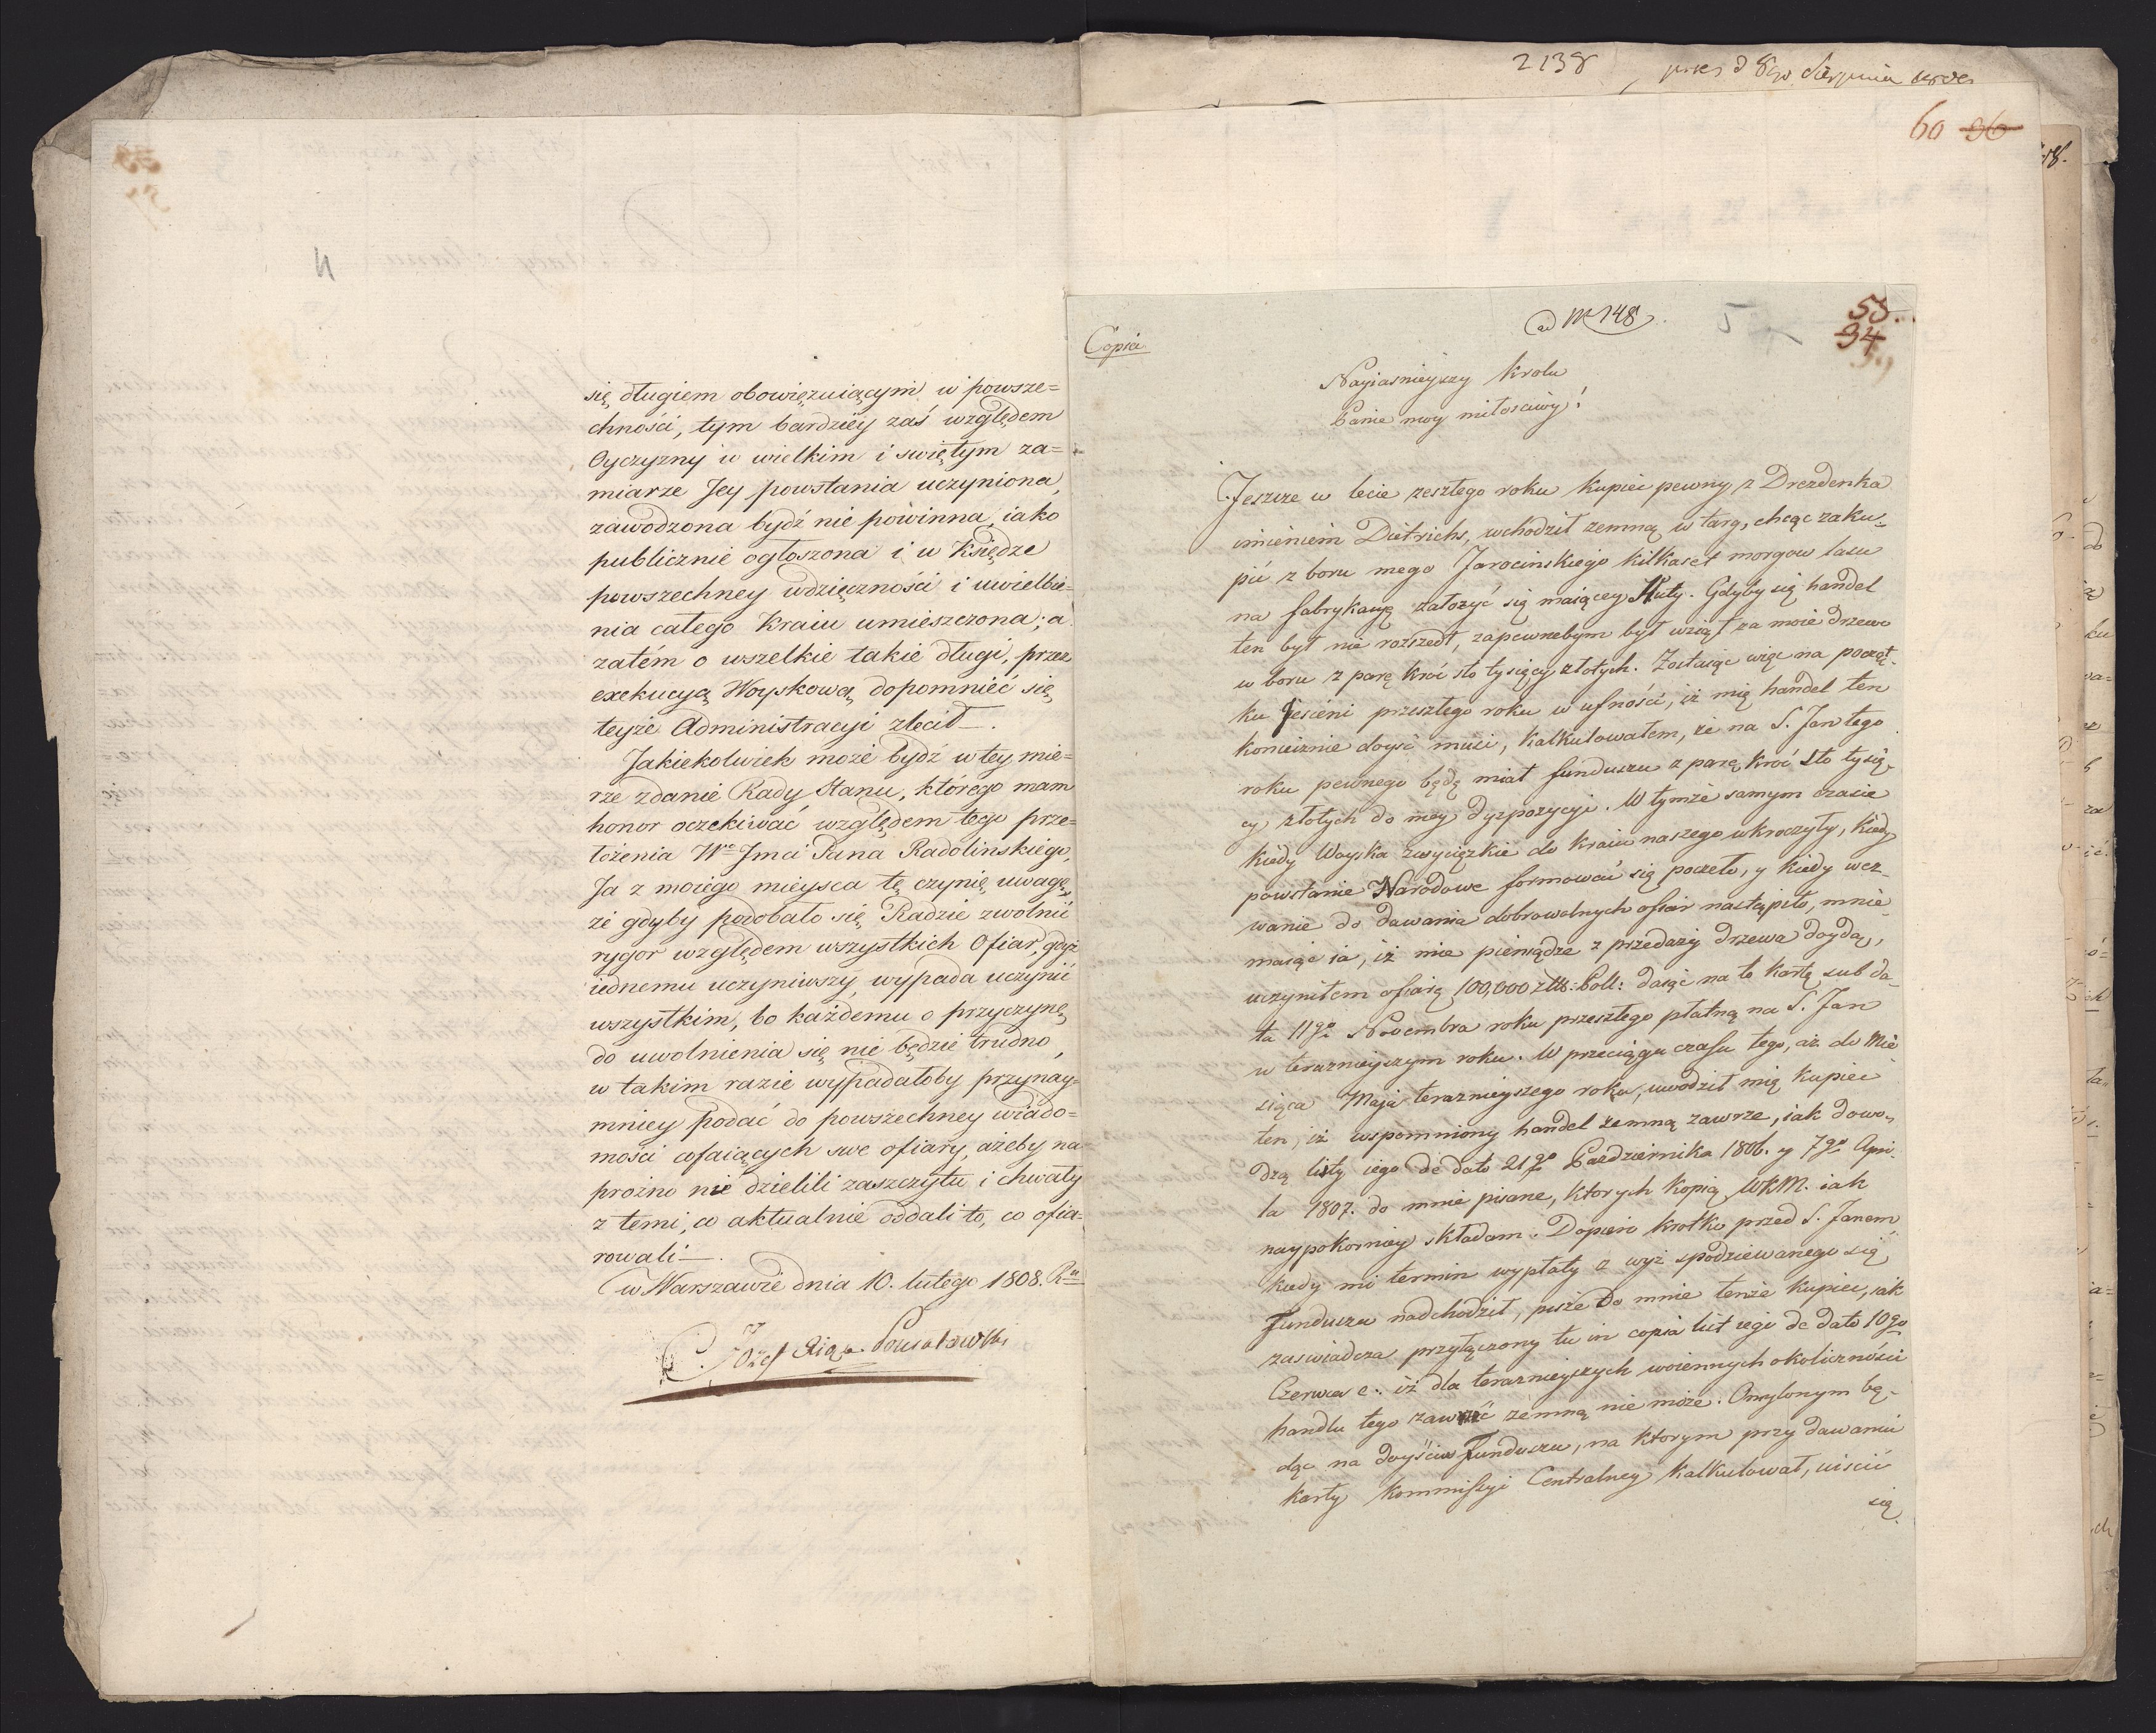 się długiem obowięzuiącym w powsze=
chności, tym bardziéy zaś względem
Oyczyzny w wielkim i swiętym za=
miarze Jey powstania uczyniona,
zawodzona bydź nie powinna, iako
publicznie ogłoszona i w Księdze
powszechney wdzięczności i uwielbie=
nia całego Kraiu umieszczona; a
zatém o wszelkie takie długi, przez
exekucyą Woyskową dopomnieć się
teyże Administracyi zlecił—.
Jakiekolwiek może bydź w tey mie=
rze zdanie Rady Stanu, którego mam
honor oczekiwać względem tego prze=
łożenia Wgo Jmci Pana Radolinskiego,
Ja z moiego mieysca tę czynię uwagę,
że gdyby podobało się Radzie zwolnić
rygor względem wszystkich Ofiar, gdyż
iednemu uczyniwszy, wypada uczynić
wszystkim, bo każdemu o przyczynę
do uwolnienia się nie będzie trudno,
w takim razie wypadałoby przynay=
mniey podać do powszechney wiado=
mości cofaiących swe ofiary, ażeby na
prożno nie dzielili zaszczytu i chwały
z temi, co aktualnie oddali to, co ofia=
rowali—.
w Warszawie dnia 10. lutego 1808. Ru
Jozef Xiąże Poniatowski
2138
60 96
ad Nr 148
55.
94
Copia
Nayiasnieyszy Krolu
Panie moy miłosciwy!
Jeszcze w lecie zeszłego roku Kupiec pewny z Drezdenka
imieniem Dietrichs, wchodził zemną w targ, chcąc zaku=
pić z boru mego Jarocinskiego kilkaset morgow lasu
na fabrykacyą założyć się maiącey Huty. Gdyby się handel
ten był nie rozszedł, zapewnebym był wziął za moie drzewo
w boru z parę kroć sto tysięcy złotych. Zostaiąc więc na począt=
ku Jesieni przeszłego roku w ufności, iż mię handel ten
koniecznie doyść musi, kalkulowałem, że na S. Jan tego
roku pewnego będę miał funduszu z parę kroć sto tysię=
cy złotych do mey dyspozycyi. W tymże samym czasie
kiedy Woyska zwycięzkie do kraiu naszego wkroczyły, kiedy
powstanie Narodowe formować się poczęło, y kiedy wez=
wanie do dawania dobrowolnych ofiar nastąpiło, mnie=
maiąc ia, iż mie pieniądze z przedaży drzewa doydą,
uczyniłem ofiarę 100,000 złł: Poll: daiąc na to kartę sub da=
ta 11go Novembra roku przeszłego płatną na S. Jan
w teraznieyszym roku. W przeciągu czasu tego, aż do Mie
siąca Maja teraznieyszego roku, uwodził mię Kupiec
ten, iż wspomniony handel zemną zawrze, iak dowo=
dzą listy iego de dato 21go Października 1806. y 7go Apri=
la 1807. do mnie pisane, ktorych Kopią WKM. iak
naypokorniey składam. Dopiero krotko przed S. Janem
kiedy mi termin wypłaty z wyż spodziewanego się
Funduszu nadchodził, pisze do mnie tenże Kupiec, iak
zaswiadcza przyłączony tu in copia list iego de dato 10go
Czerwca c: iż dla teraznieyszych woiennych okoliczności
handlu tego zawrzeć zemną nie może. Omylonym bę=
dąc na doyściu Funduszu, na ktorym przy dawaniu
karty Kommissyi Centralney kalkulował, uiscić
się